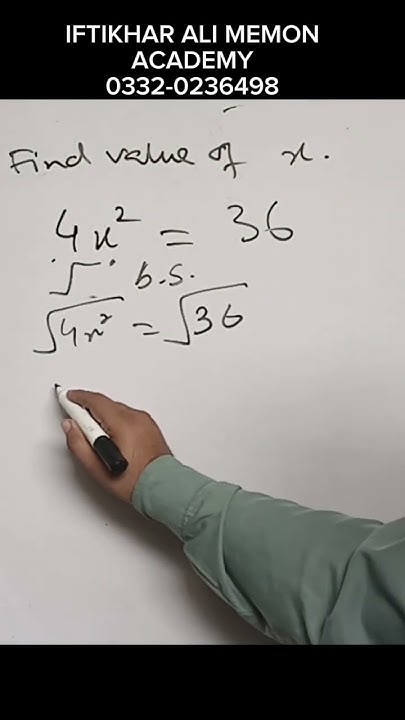 IFTIKHAR ALI MEMON
ACADEMY
0332-0236498
Find value of x.
4x² = 36
"√" b.s.
√4x² = √36